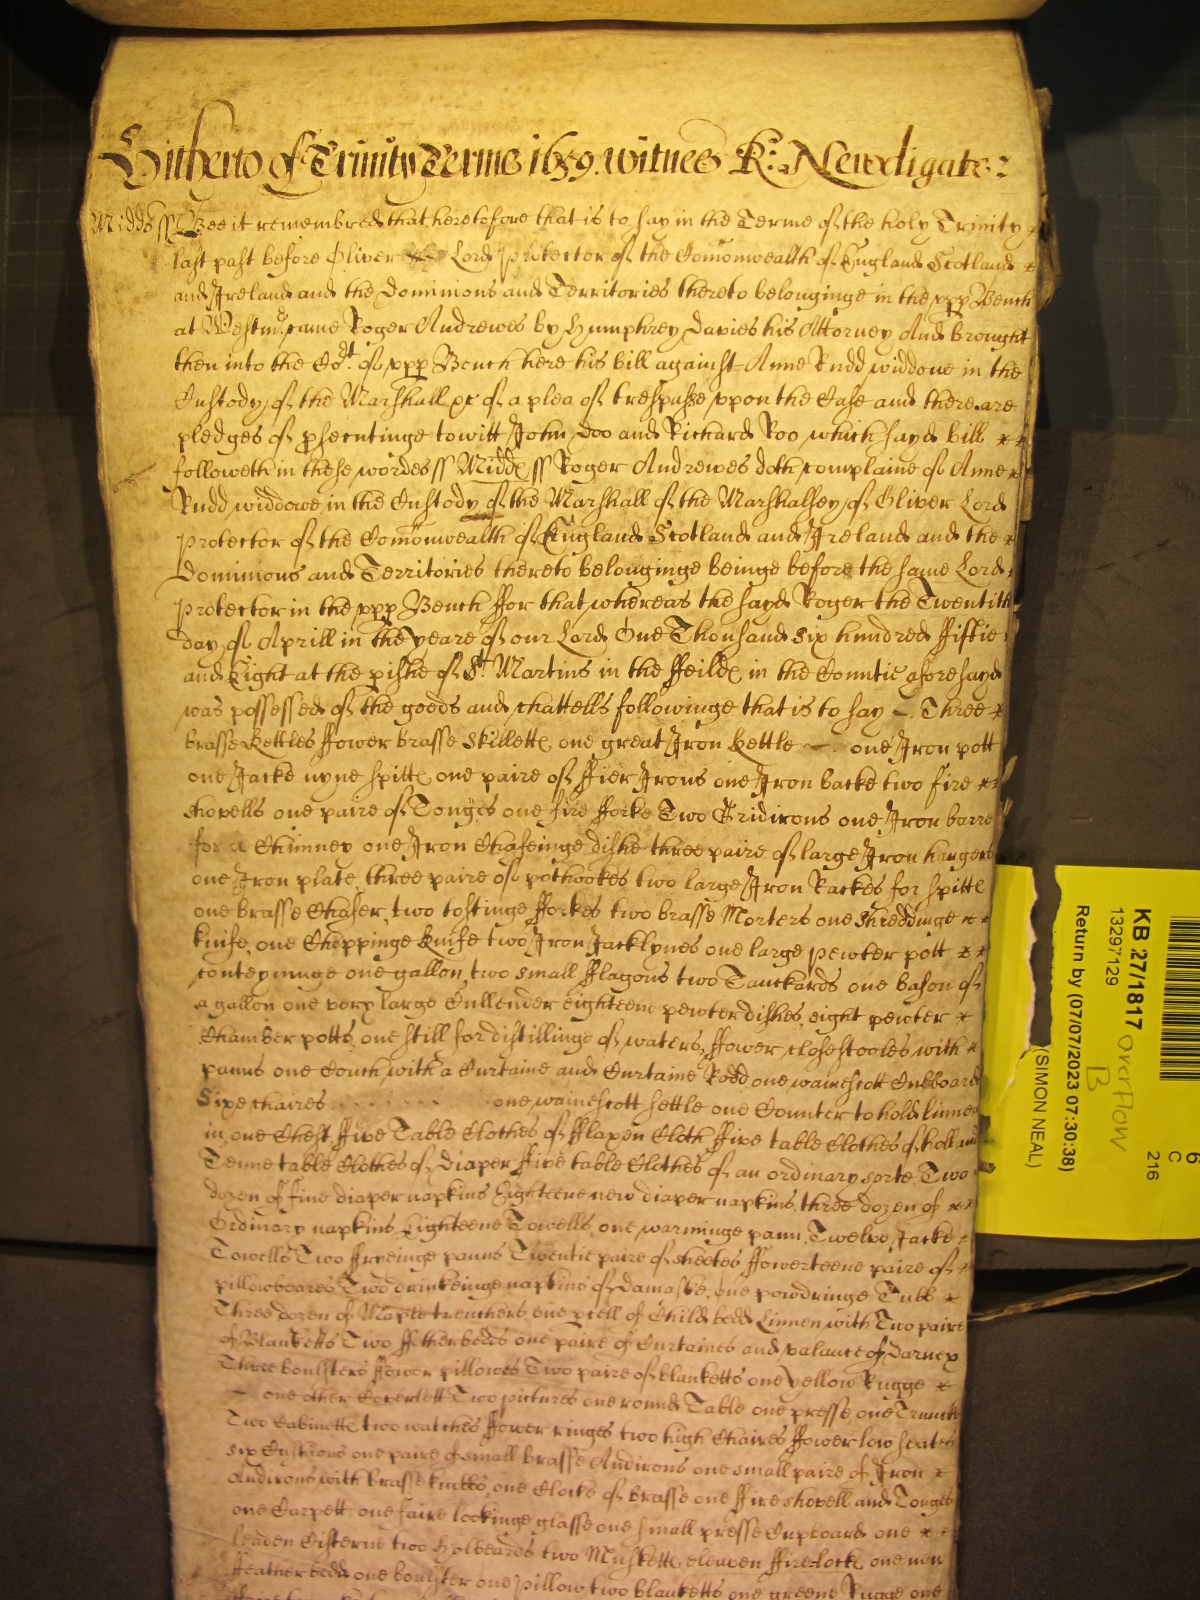 Hitherto of Trinity Terme 1659. witnes R: Newdigate:
Midds ss Bee it remembred that heretofore that is to say in the Terme of the holy Trinity
last past before Oliver Lord Protector of the Comonwealth of England Scotland
and Ireland and the Dominions and Territories thereto belonginge in the upp Bench
at Westmr came Roger Andrewes by Humphrey Davies his Attorney And brought
then into the Cort of upp Bench here his bill against Anne Rudd widdowe in the
Custody of the Marshall &c of a plea of trespasse uppon the Case and there are
pledges of psecutinge to witt John Doo and Richard Roo which sayd bill
followeth in these wordes ss Midd ss Roger Andrewes doth complaine of Anne
Rudd widdowe in the Custody of the Marshall of the Marshalsey of Oliver Lord
Protector of the Comonwealth of England Scotland and Ireland and the
Dominions and Territories thereto belonginge beinge before the same Lord
Protector in the upp Bench ffor that whereas the sayd Roger the Twentith
day of Aprill in the yeare of our Lord One Thousand Six hundred ffiftie
and Eight at the pishe of St Martins in the ffeild in the Countie aforesayd
was possessed of the goods and chattells followinge that is to say Three
brasse Kettles ffower brasse Skilletts one great Iron Kettle one Iron pott
one Jacke nyne spitts one paire of ffier Irons one Iron backe two fire
shovells one paire of Tonges one fire fforke Two Gridirons one Iron barre
for a Chimney one Iron Chafeinge dishe three paire of large Iron hangers
one Iron plate three paire of pothookes two large Iron Rackes for spitts
one brasse Chafer two tostinge fforkes two brasse Morters one shreddinge
knife one Choppinge knife two Iron Jacklynes one large pewter pott
conteyninge one gallon two small fflagons two Tanckards one bason of
a gallon one very large Cullender eighteene pewter dishes eight pewter
Chamber potts one still for distillinge of waters ffower close stooles with
panns one Couch with a Curtaine and Curtaine Rodd one wainscott Cubboard
Sixe chaires one wainescott settle one Counter to hold linnen
in one Chest ffive Table Clothes of fflaxen Cloth ffive table Clothes of holland
Tenne table Clothes of Diaper ffive table Clothes of an ordinary sorte Two
dozen of fine diaper napkins Eighteene new diaper napkins three dozen of
Ordinary napkins Eighteene Towells one warminge pann Twelve Jacke
Towells Two ffryeinge panns Twentie paire of sheetes ffowerteene paire of
pillowbeares Two drinkeinge napkins of damaske one powdringe Tubb
Three dozen of Maple trenchers one pcell of Child bedd Linnen with Two paire
of Blanketts Two ffetherbedds one paire of Curtaines and valance of Darnex
Three boulsters ffower pillowes Two paire of blanketts one yellow Rugge
one other Coverlett Two pictures one round Table one presse one Trunck
Two Cabinetts two watches ffower ringes two high Chaires ffower low seates
six Cushions one paire of small brasse Andirons one small paire of Iron
Andirons with brasse knobbs one Clocke of brasse one ffire shovell and Tonges
one Carpett one faire lookinge glasse one small presse Cupboard one
leaden Cisterne two Holbeards two Musketts eleaven ffirelocks one new
ffeather bedd one boulster one pillow two blanketts one greene Rugge one
KB 27/1817
13297129
Overflow
B
Return by (07/07/2023 07:30:38)
(SIMON NEAL)
6
C
216